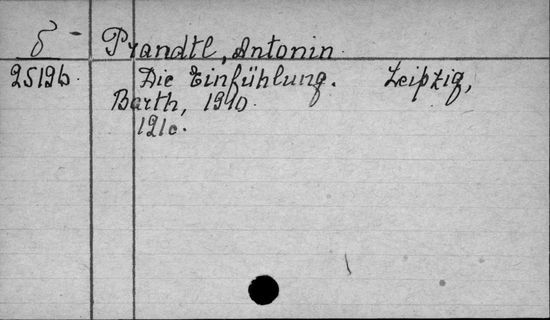 δ - Prandtl, Antonin
25126 Die Einfühlung. Leipzig,
Barth, 1910.
121c.